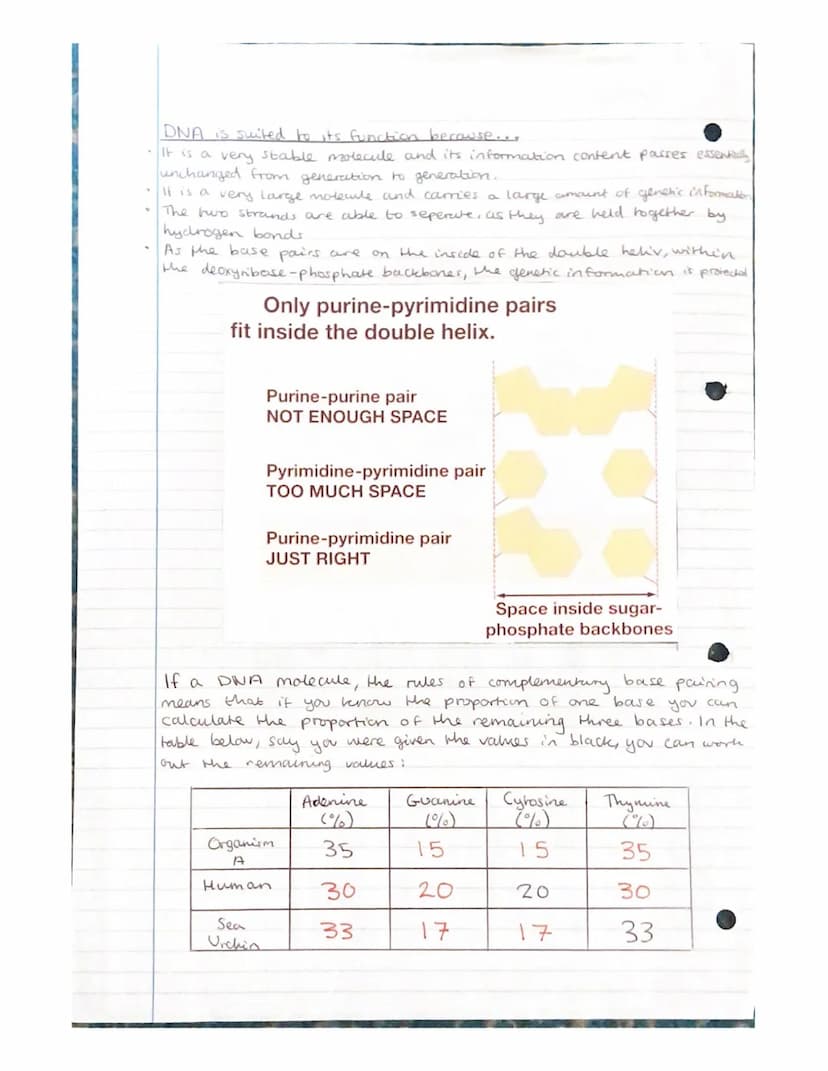 DNA is suited to its function because...
• It is a very stable molecule and its information content passes essentially
unchanged from generation to generation.
• It is a very large molecule and carries a large amount of genetic information
• The two strands are able to seperate, as they are held together by
hydrogen bonds
• As the base pairs are on the inside of the double helix, within
the deoxyribose-phosphate backbones, the genetic information is protected
Only purine-pyrimidine pairs
fit inside the double helix.
Purine-purine pair
NOT ENOUGH SPACE
Pyrimidine-pyrimidine pair
TOO MUCH SPACE
Purine-pyrimidine pair
JUST RIGHT
Space inside sugar-
phosphate backbones
If a DNA molecule, the rules of complementary base pairing
means that if you know the proportion of one base you can
calculate the proportion of the remaining three bases. In the
table below, say you were given the values in black, you can work
out the remaining values:
Adenine (%) Guanine (%) Cytosine (%) Thymine (%)
Organism A 35 15 15 35
Human 30 20 20 30
Sea Urchin 33 17 17 33